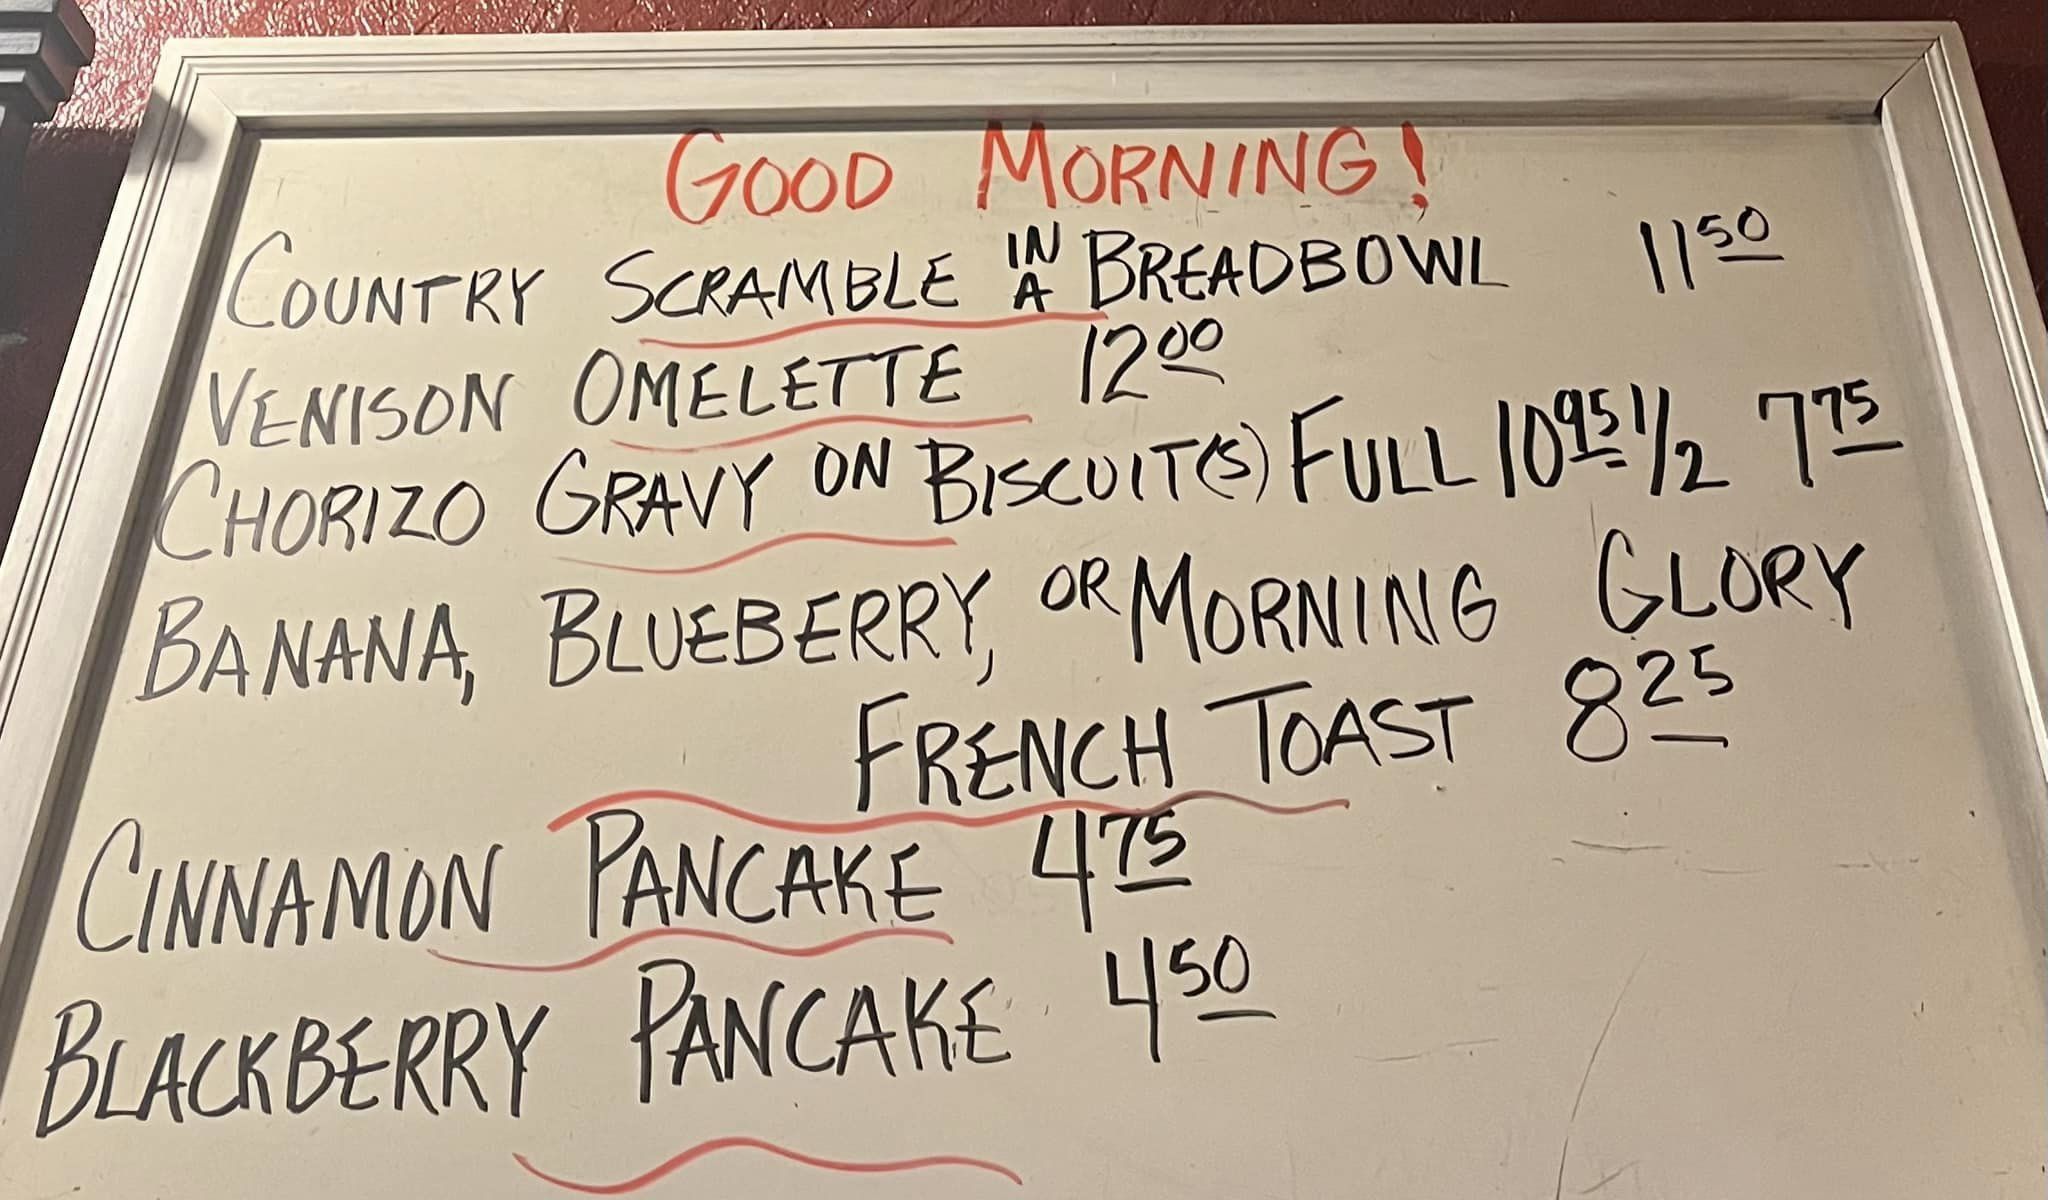 GOOD MORNING!
COUNTRY SCRAMBLE IN A BREADBOWL 11 50
VENISON OMELETTE 12 00
CHORIZO GRAVY ON BISCUIT(S) FULL 10 95 1/2 7 75
BANANA, BLUEBERRY, OR MORNING GLORY
FRENCH TOAST 8 25
CINNAMON PANCAKE 4 75
BLACKBERRY PANCAKE 4 50